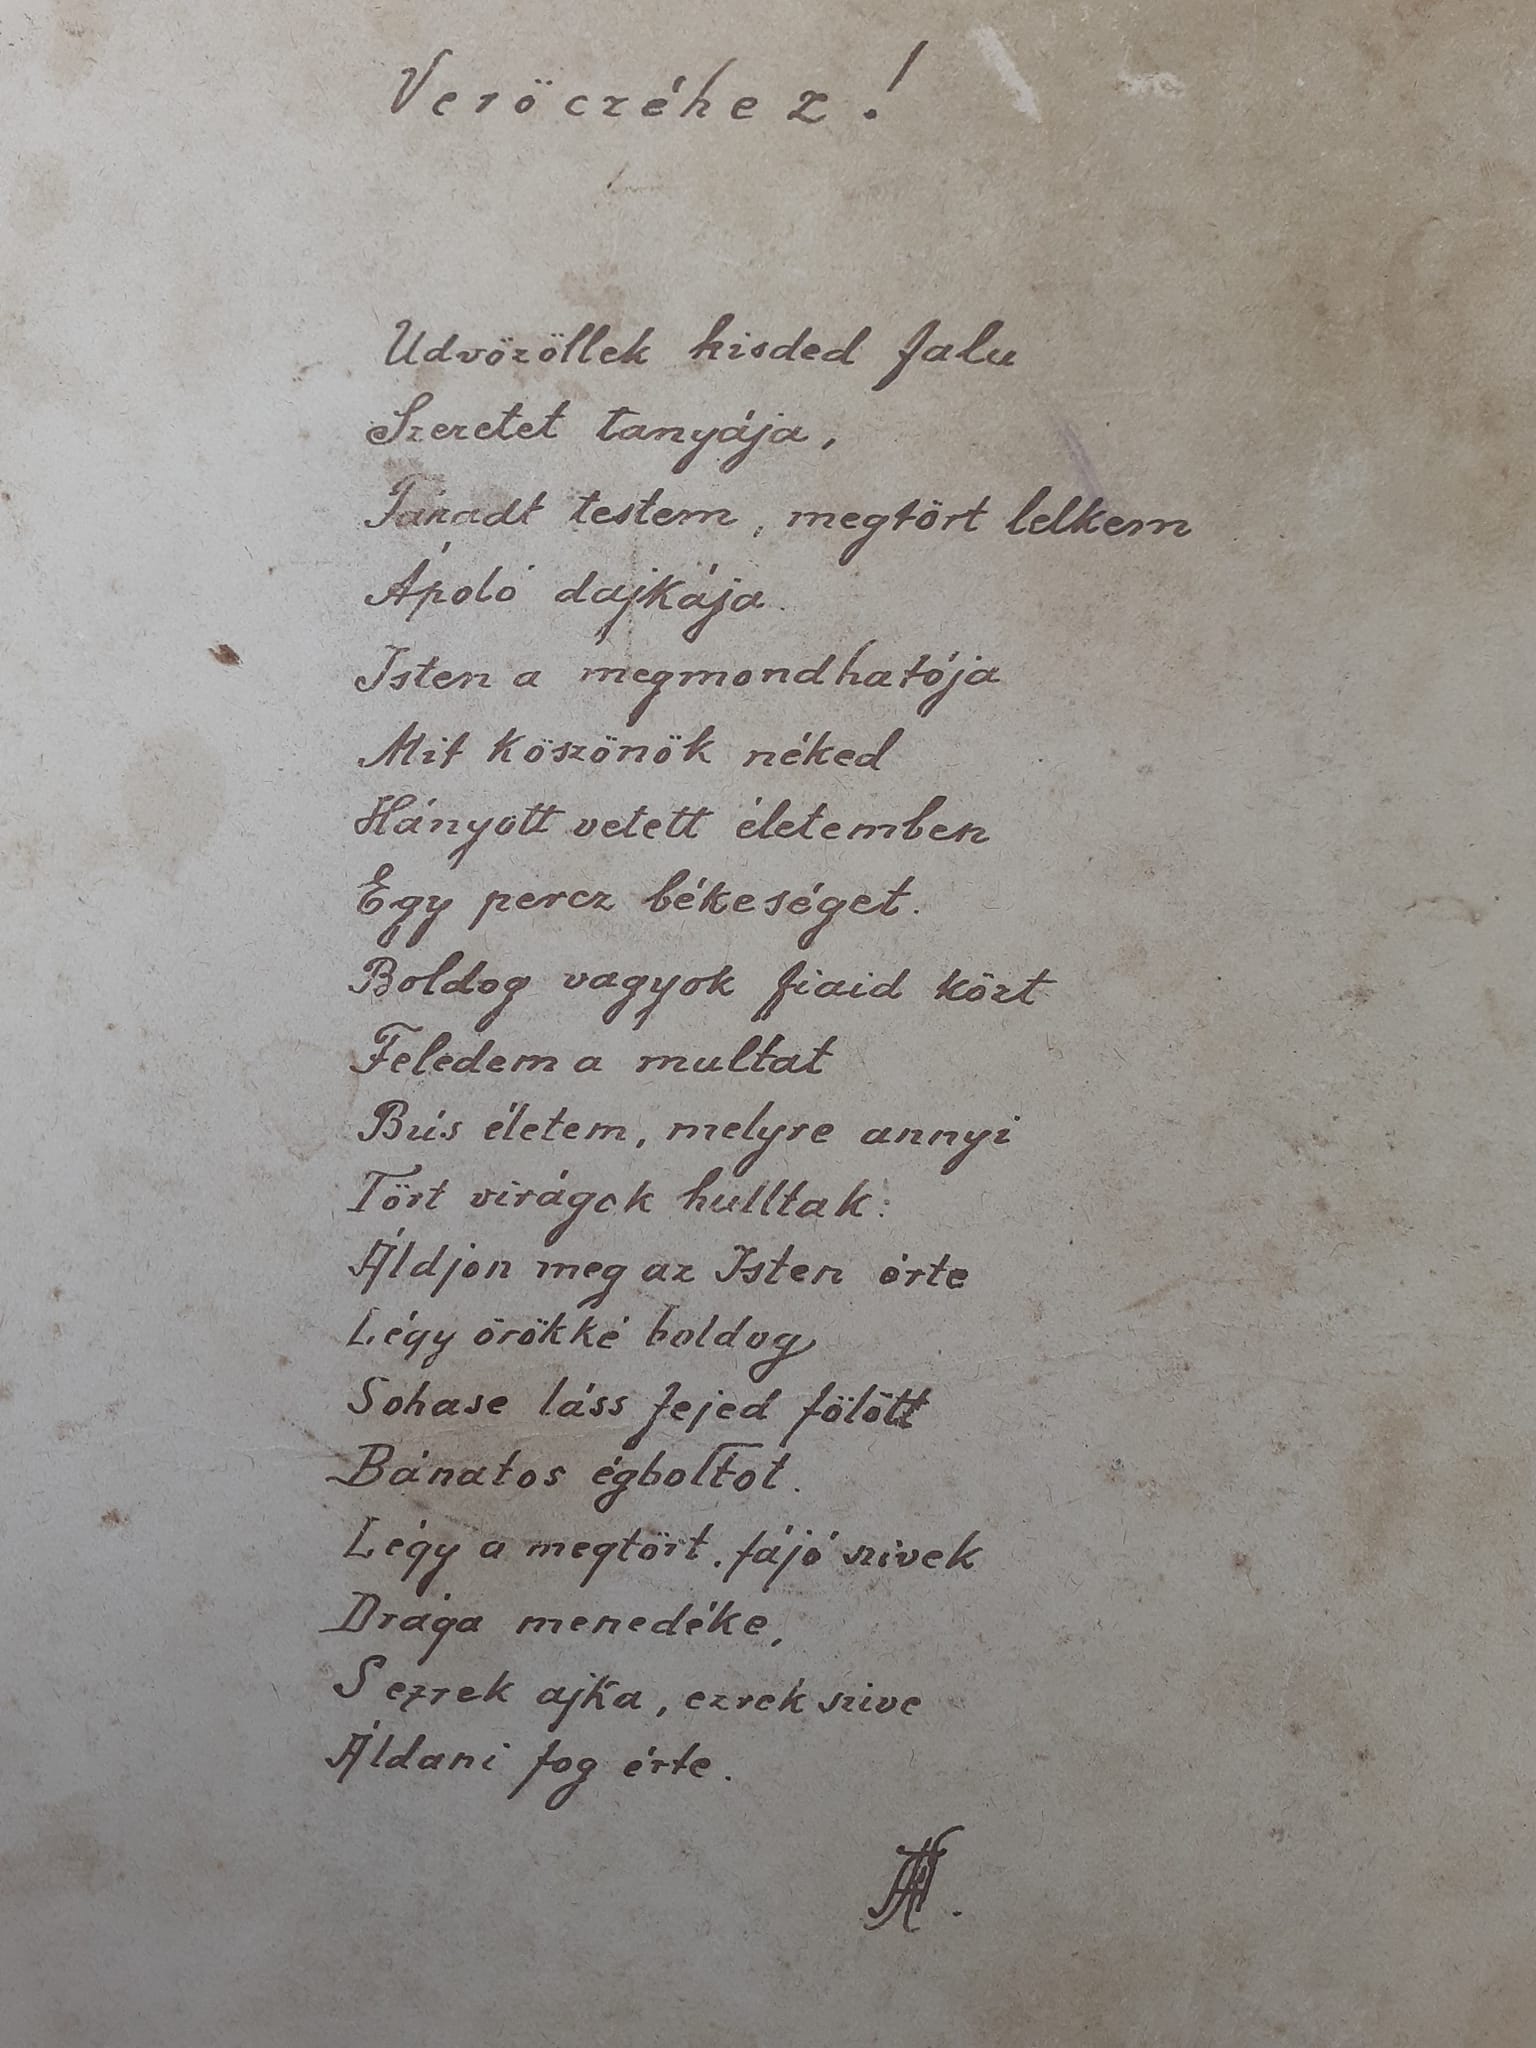 Veröczéhez!
Udvözöllek kisded falu
Szeretet tanyája,
Fáradt testem, megtört lelkem
Ápoló dajkája.
Isten a megmondhatója
Mit köszönök néked
Hányott vetett életemben
Egy percz békeséget.
Boldog vagyok fiaid közt
Feledem a multat
Bús életem, melyre annyi
Tört virágok hulltak:
Áldjon meg az Isten érte
Légy örökké boldog
Sohase láss fejed fölött
Bánatos égboltot.
Légy a megtört, fájó szivek
Drága menedéke,
S ezrek ajka, ezrek szive
Áldani fog érte.